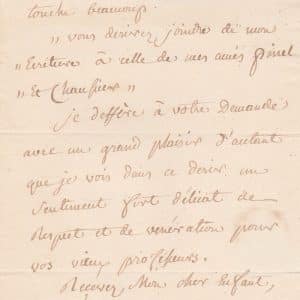 touche beaucoup.
" vous desirez joindre de mon
" Ecriture à celle de mes amis pinel
" Et Chaussier "
je deffère à votre Demande
avec un grand plaisir d'autant
que je vois dans ce desir un
sentiment fort délicat de
Respect et de vénération pour
vos vieux professeurs.
Recevez, Mon cher Enfant,